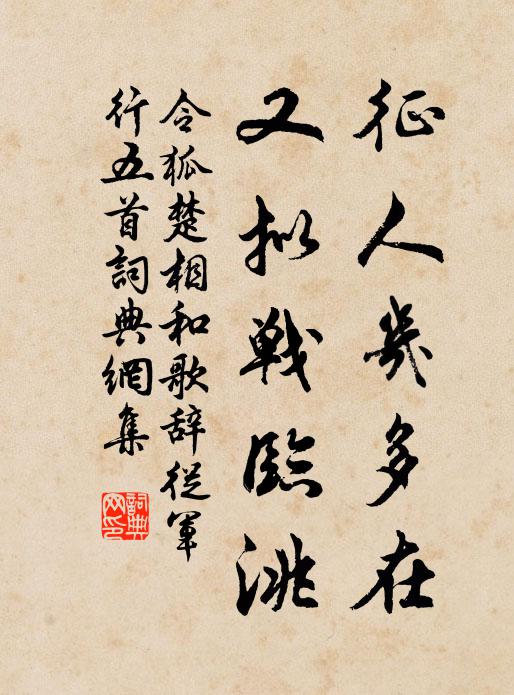 征人幾多在
又拟戰臨洮
令狐楚相和歌辞從軍
行五首詞典網集
詞典网印